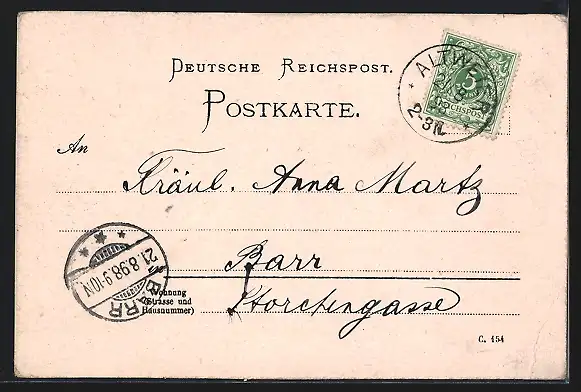 Deutsche Reichspost.
Postkarte.
ALTW
5
REICHSPOST
2-3N.
An
Fräul. Anna Martz
Barr
21.8.98.9-10N
BARR
Wohnung
(Strasse und
Hausnummer)
Storchengasse
C. 154